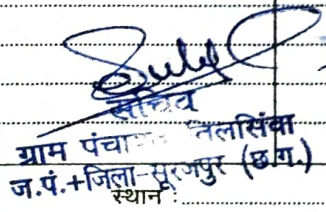 सचिव
ग्राम पंचायत तिलसिंवा
ज.पं.+जिला-सूरजपुर (छ.ग.)
स्थान :